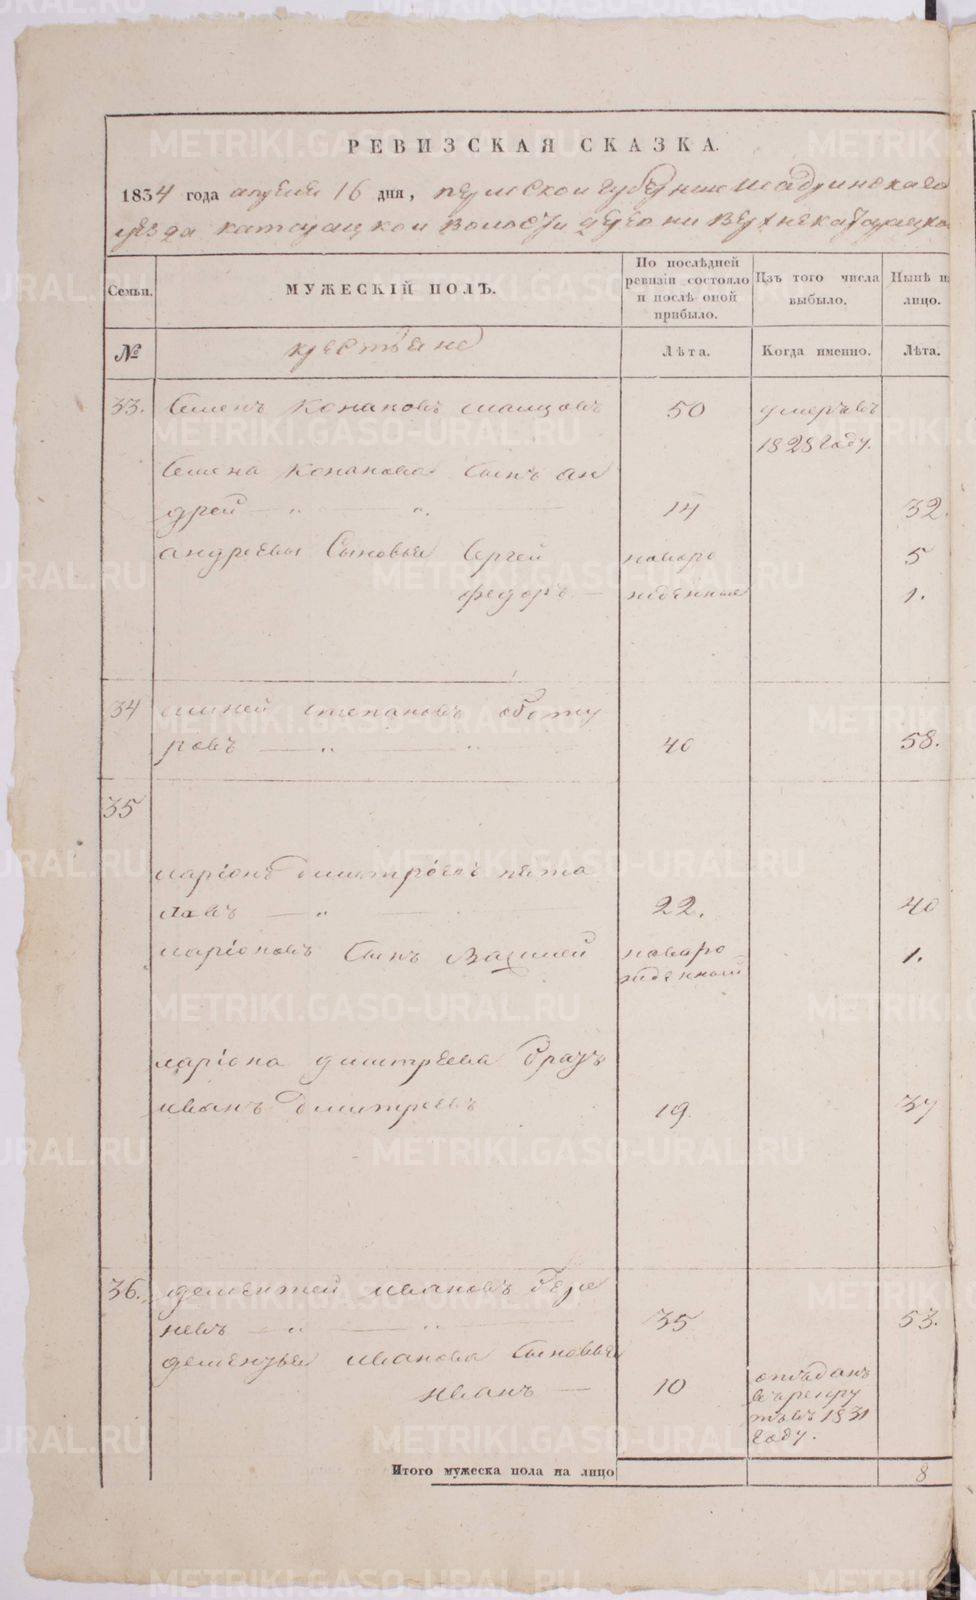 РЕВИЗСКАЯ СКАЗКА.
1834 года апреля 16 дня, пермской губернии шадринскаго
уезда катайской волости деревни верхне
Семьи.
МУЖЕСКІЙ ПОЛЪ.
По послѣдней ревизіи состояло и послѣ оной прибыло.
Изъ того числа выбыло.
Нынѣ на лицо.
№
крестьяне
Лѣта.
Когда именно.
Лѣта.
33. Семенъ Конановъ 50 умеръ въ
1828 году.
Семена Конанова Сынъ ан
дрей — „ — „ — 14 32.
андреевы Сыновья Сергей новоро 5
федоръ — жденные 1.
34 степановъ
ровъ — „ — „ 40 58.
35
ларіонъ дмитріевъ пята
ковъ — „ — 22. 40
ларіоновъ Сынъ Василей новоро 1.
жденный
ларіона дмитрева братъ
иванъ дмитревъ 19 37
36. дементей ивановъ бере
невъ — „ — „ — 35 53.
дементья иванова Сыновья
иванъ — 10 отъданъ
въ рекру
ты въ 1831
году.
Итого мужеска пола на лицо 8
METRIKI.GASO-URAL.RU